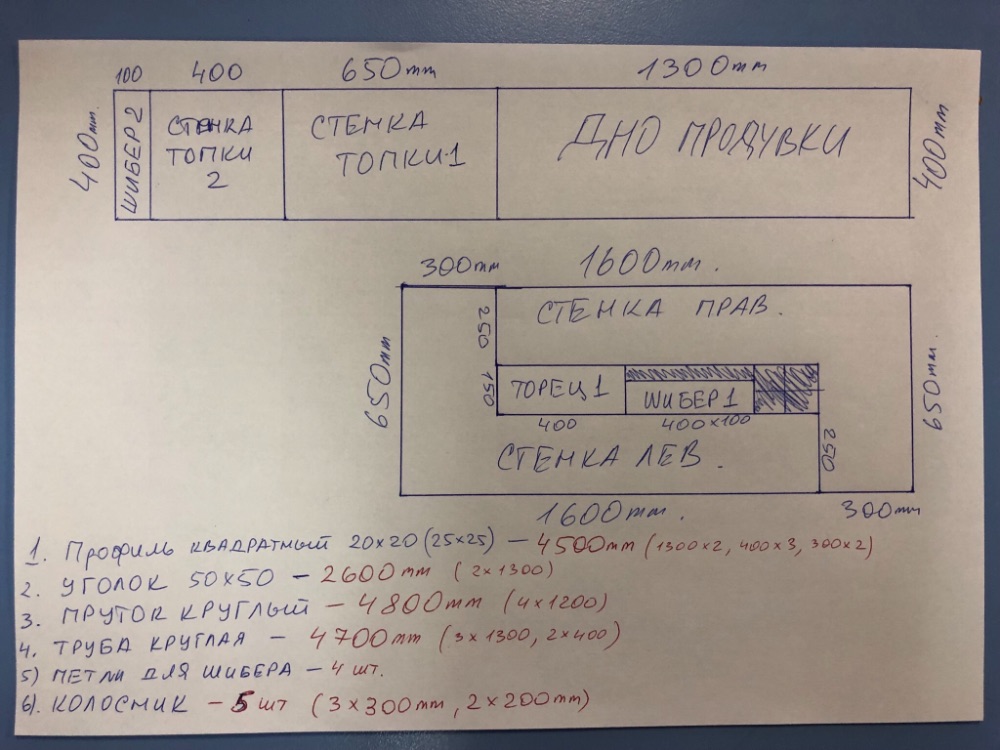 100 400 650mm 1300mm
400mm.
ШИБЕР 2
СТЕНКА
ТОПКИ
2
СТЕНКА
ТОПКИ-1
ДНО ПРОДУВКИ
400mm
300mm 1600mm.
650mm
250
СТЕНКА ПРАВ.
150
ТОРЕЦ 1
ШИБЕР 1
400
400×100
СТЕНКА ЛЕВ.
250
650mm.
1600mm. 300mm
1. Профиль квадратный 20×20 (25×25) – 4500mm (1300×2, 400×3, 300×2)
2. УГОЛОК 50×50 – 2600mm (2×1300)
3. ПРУТОК КРУГЛЫЙ – 4800mm (4×1200)
4. ТРУБА КРУГЛАЯ – 4700mm (3×1300, 2×400)
5) ПЕТЛИ ДЛЯ ШИБЕРА – 4 шт.
6). КОЛОСНИК – 5 шт (3×300mm, 2×200mm)